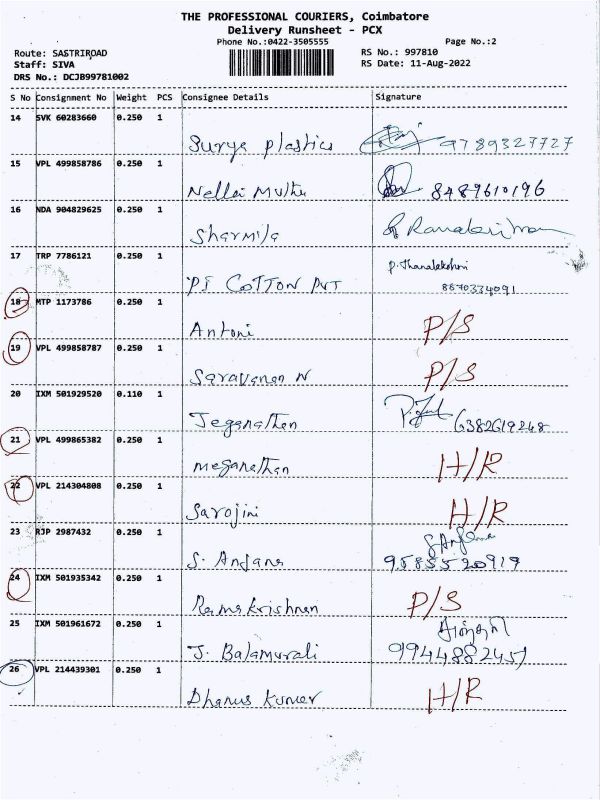 THE PROFESSIONAL COURIERS, Coimbatore
Delivery Runsheet - PCX
Phone No.:0422-3505555 Page No.:2
Route: SASTRIROAD RS No.: 997810
Staff: SIVA RS Date: 11-Aug-2022
DRS No.: DCJB99781002
S No Consignment No Weight PCS Consignee Details Signature
14 SVK 60283660 0.250 1
Surya plastics 9789327727
15 VPL 499858786 0.250 1
Nellai Muthu 8489610196
16 NDA 904829625 0.250 1
Sharmila
17 TRP 7786121 0.250 1 P. Thanalakshmi
PJ COTTON PVT 8870334091
18 MTP 1173786 0.250 1
Antoni P/S
19 VPL 499858787 0.250 1
Saravanan N P/S
20 IXM 501929520 0.110 1
Jeganathan 6382619248
21 VPL 499865382 0.250 1
meganathan H/R
22 VPL 214304808 0.250 1
Sarojini H/R
23 RJP 2987432 0.250 1
S. Anjana 9585520919
24 IXM 501935342 0.250 1
Ramakrishnan P/S
25 IXM 501961672 0.250 1
J. Balamurali 9944882457
26 VPL 214439301 0.250 1
Dhanus kumar H/R